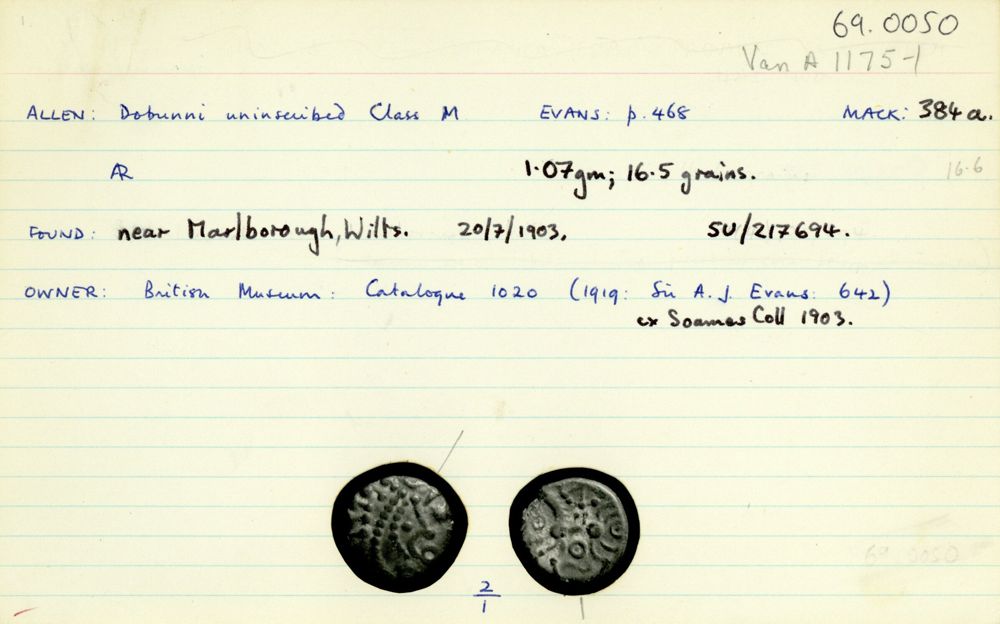 69.0050
Van A 1175-1
ALLEN: Dobunni uninscribed Class M EVANS: p.468 MACK: 384a.
AR 1.07gm; 16.5 grains. 16.6
FOUND: near Marlborough, Wilts. 20/7/1903. SU/217694.
OWNER: British Museum: Catalogue 1020 (1919: Sir A. J. Evans: 642)
ex Soames Coll 1903.
69.0050
2
1